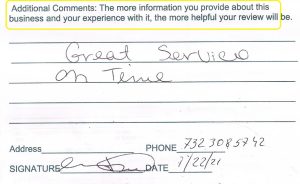 Additional Comments: The more information you provide about this
business and your experience with it, the more helpful your review will be.
Great Service
on Time
Address PHONE 732 308 5742
SIGNATURE DATE 1/22/21